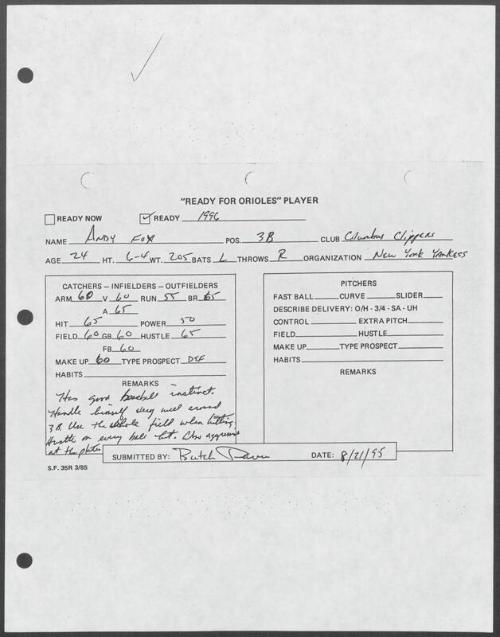 "READY FOR ORIOLES" PLAYER
READY NOW ✓ READY 1996
NAME Andy Fox POS. 3B CLUB Columbus Clippers
AGE 24 HT. 6-4 WT. 205 BATS L THROWS R ORGANIZATION New York Yankees
CATCHERS – INFIELDERS – OUTFIELDERS
ARM 60 V 60 RUN 55 BR 65
A 65
HIT 65 POWER 50
FIELD 60 GB 60 HUSTLE 65
FB 60
MAKE UP 60 TYPE PROSPECT DEF
HABITS
REMARKS
Has good baseball instinct.
Handle himself very well around
3B Use the whole field when hitting.
Hustle on every ball hit. aggressive
at the plate
PITCHERS
FAST BALL CURVE SLIDER
DESCRIBE DELIVERY: O/H - 3/4 - SA - UH
CONTROL EXTRA PITCH
FIELD HUSTLE
MAKE UP TYPE PROSPECT
HABITS
REMARKS
SUBMITTED BY: Butch Davis DATE: 8/21/95
S.F. 35R 3/85